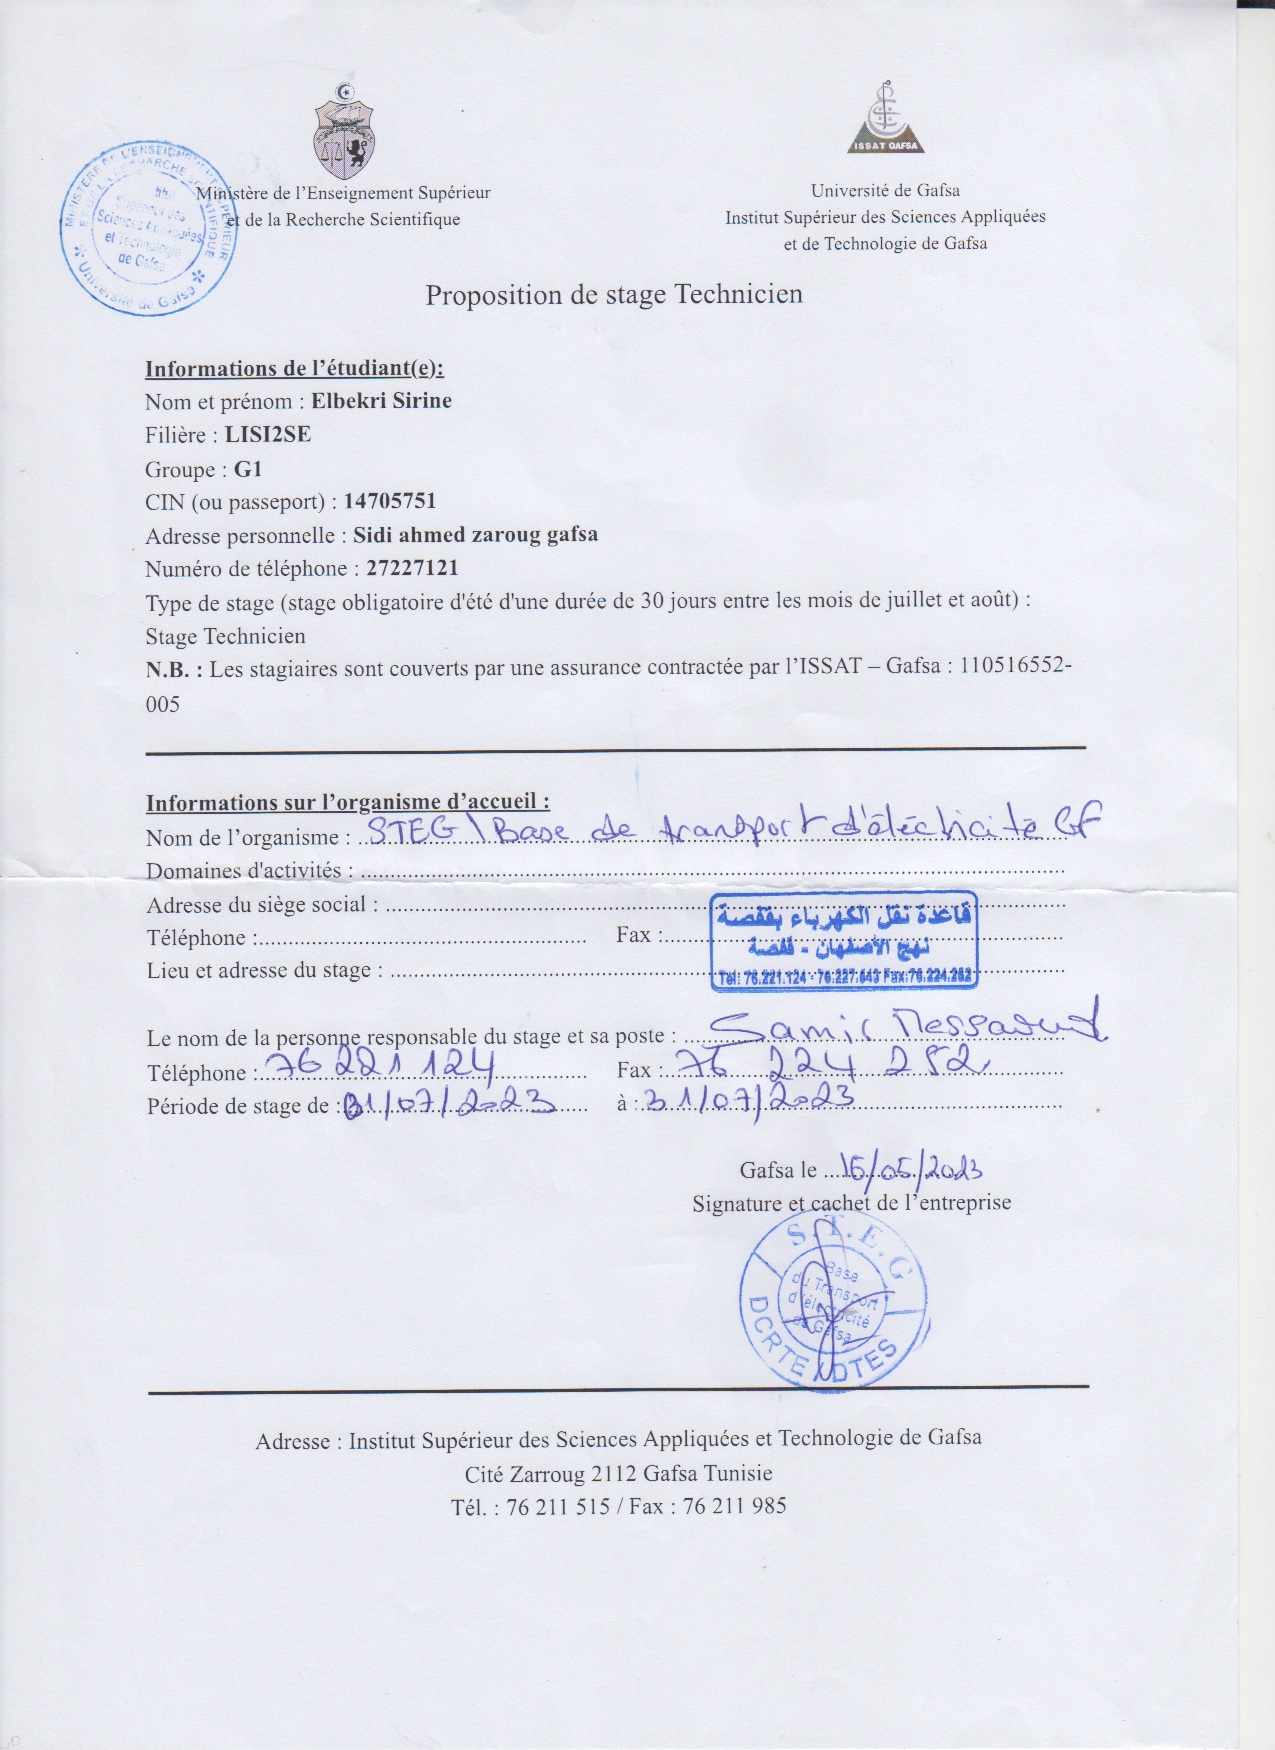 ISSAT GAFSA
Ministère de l'Enseignement Supérieur
et de la Recherche Scientifique
Université de Gafsa
Institut Supérieur des Sciences Appliquées
et de Technologie de Gafsa
MINISTÈRE DE L'ENSEIGNEMENT SUPÉRIEUR
ET DE LA RECHERCHE SCIENTIFIQUE
Supérieur des
Sciences Appliquées
et Technologie
de Gafsa
Université de Gafsa
Proposition de stage Technicien
Informations de l'étudiant(e):
Nom et prénom : Elbekri Sirine
Filière : LISI2SE
Groupe : G1
CIN (ou passeport) : 14705751
Adresse personnelle : Sidi ahmed zaroug gafsa
Numéro de téléphone : 27227121
Type de stage (stage obligatoire d'été d'une durée de 30 jours entre les mois de juillet et août) :
Stage Technicien
N.B. : Les stagiaires sont couverts par une assurance contractée par l'ISSAT – Gafsa : 110516552-
005
Informations sur l'organisme d'accueil :
Nom de l'organisme : STEG \ Base de transport d'éléctricité GF
Domaines d'activités :
Adresse du siège social :
Téléphone : Fax :
Lieu et adresse du stage :
قاعدة نقل الكهرباء بقفصة
نهج الأصفهان - قفصة
Tel: 76.221.124 - 76.227.643 Fax:76.224.282
Le nom de la personne responsable du stage et sa poste : Samir Messaoud
Téléphone : 76 221 124 Fax : 76 224 282
Période de stage de : 01/07/2023 à : 31/07/2023
Gafsa le 16/05/2023
Signature et cachet de l'entreprise
S.T.E.G
Base
du Transport
d'électricité
de Gafsa
DCRTE / DTES
Adresse : Institut Supérieur des Sciences Appliquées et Technologie de Gafsa
Cité Zarroug 2112 Gafsa Tunisie
Tél. : 76 211 515 / Fax : 76 211 985